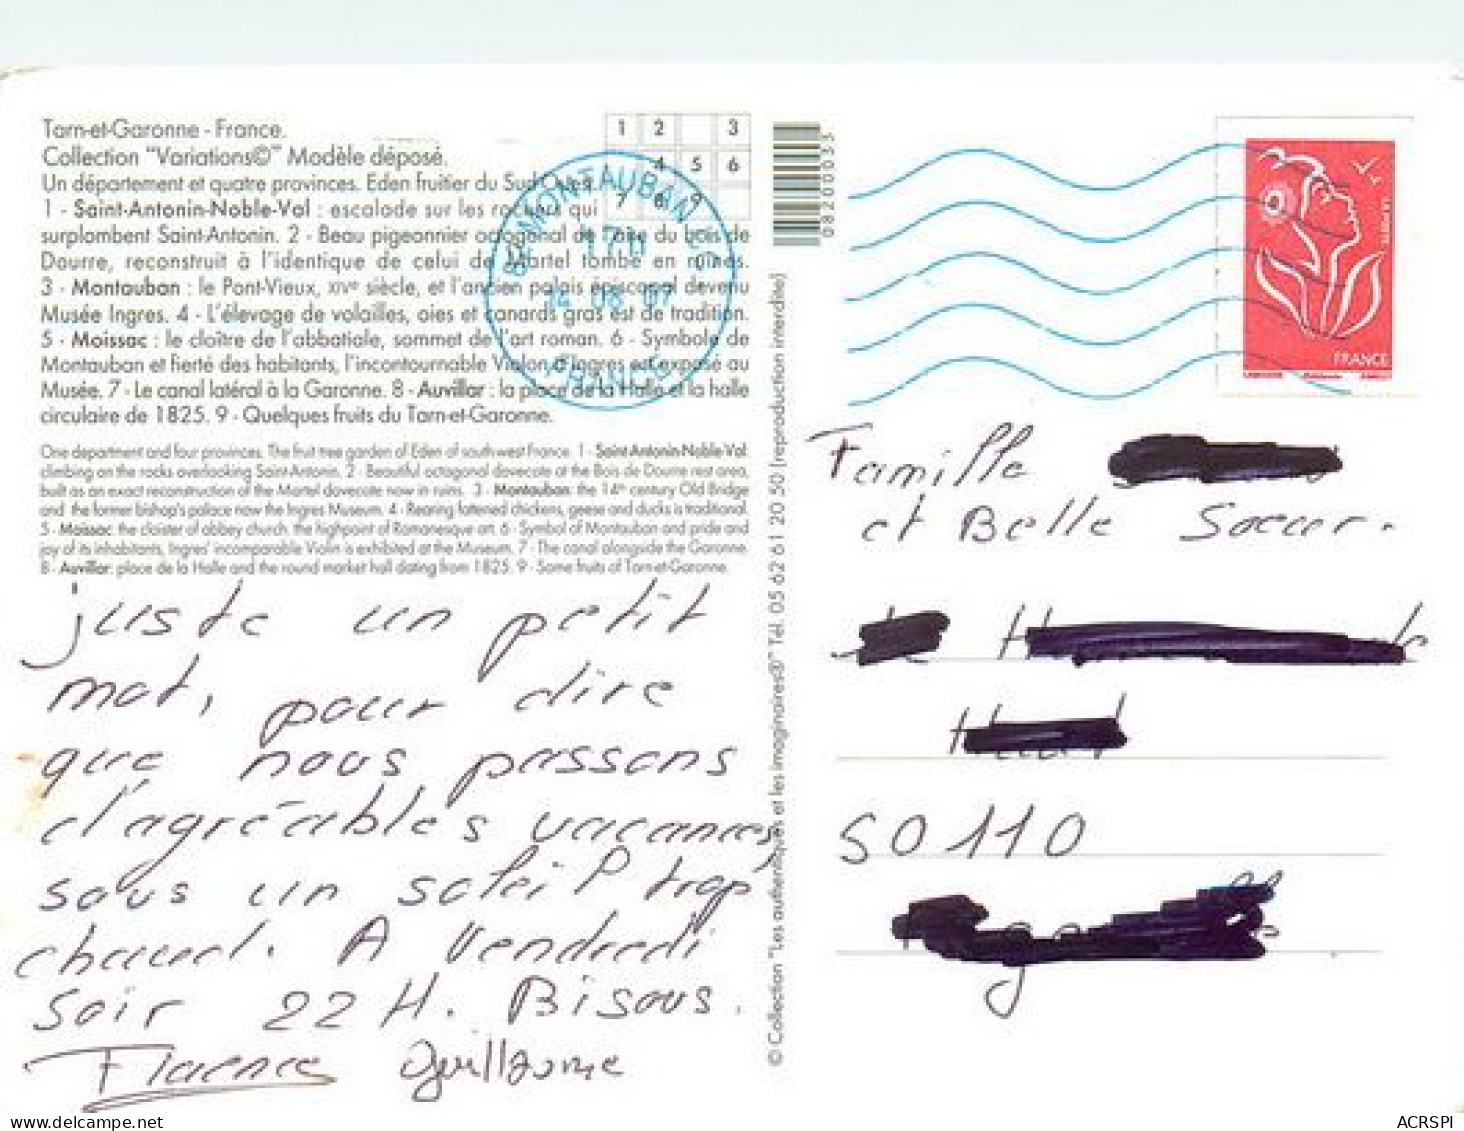 Tarn-et-Garonne - France.
Collection "Variations©" Modèle déposé.
Un département et quatre provinces. Eden fruitier du Sud-Ouest.
1 - Saint-Antonin-Noble-Val : escalade sur les rochers qui
surplombent Saint-Antonin. 2 - Beau pigeonnier octogonal de l'aire du bois de
Dourre, reconstruit à l'identique de celui de Martel tombé en ruines.
3 - Montauban : le Pont-Vieux, XIVe siècle, et l'ancien palais épiscopal devenu
Musée Ingres. 4 - L'élevage de volailles, oies et canards gras est de tradition.
5 - Moissac : le cloître de l'abbatiale, sommet de l'art roman. 6 - Symbole de
Montauban et fierté des habitants, l'incontournable Violon d'Ingres est exposé au
Musée. 7 - Le canal latéral à la Garonne. 8 - Auvillar : la place de la Halle et la halle
circulaire de 1825. 9 - Quelques fruits du Tarn-et-Garonne.
One department and four provinces. The fruit tree garden of Eden of south-west France. 1 - Saint-Antonin-Noble-Val:
climbing on the rocks overlooking Saint-Antonin. 2 - Beautiful octagonal dovecote at the Bois de Dourre rest area,
built as an exact reconstruction of the Martel dovecote now in ruins. 3 - Montauban: the 14th century Old Bridge
and the former bishop's palace now the Ingres Museum. 4 - Rearing fattened chickens, geese and ducks is traditional.
5 - Moissac: the cloister of abbey church, the highpoint of Romanesque art. 6 - Symbol of Montauban and pride and
joy of its inhabitants, Ingres' incomparable Violin is exhibited at the Museum. 7 - The canal alongside the Garonne.
8 - Auvillar: place de la Halle and the round market hall dating from 1825. 9 - Some fruits of Tarn-et-Garonne.
1 2 3
4 5 6
7 8 9
MONTAUBAN
08 07
FRANCE
juste un petit
mot, pour dire
que nous passons
d'agréables vacances,
sous un soleil trop
chaud. A Vendredi
soir 22 H. Bisous.
Florence Guillaume
© Collection "Les authentiques et les imaginaires®" Tél. 05 62 61 20 50 (reproduction interdite)
08200035
FRANCE
Famille
et Belle Soeur.
50110
ACRSPI